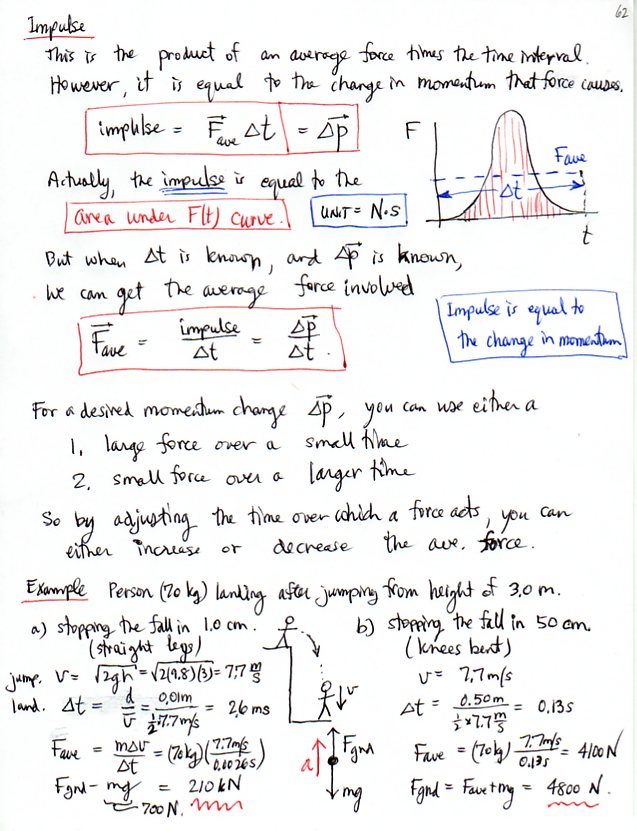 62
Impulse
This is the product of an average force times the time interval.
However, it is equal to the change in momentum that force causes.
impulse = F⃗ave Δt = Δp⃗
F
Fave
Δt
t
Actually, the impulse is equal to the
area under F(t) curve.
UNIT = N·s
But when Δt is known, and Δp⃗ is known,
We can get the average force involved
F⃗ave = impulse/Δt = Δp⃗/Δt.
Impulse is equal to
the change in momentum
For a desired momentum change Δp⃗, you can use either a
1. large force over a small time
2. small force over a larger time
So by adjusting the time over which a force acts, you can
either increase or decrease the ave. force.
Example Person (70 kg) landing after jumping from height of 3.0 m.
a) stopping the fall in 1.0 cm.
(straight legs)
jump. v = √2gh = √2(9.8)(3) = 7.7 m/s
land. Δt = d/v̄ = 0.01m/½*7.7m/s = 2.6 ms
Fave = mΔv/Δt = (70kg)(7.7m/s/0.0026s)
Fgnd - mg = 210 kN
700 N.
v
a
Fgnd
mg
b) stopping the fall in 50 cm.
(knees bent)
v = 7.7 m/s
Δt = 0.50m/½*7.7m/s = 0.13s
Fave = (70kg) 7.7m/s/0.13s = 4100 N
Fgnd = Fave + mg = 4800 N.